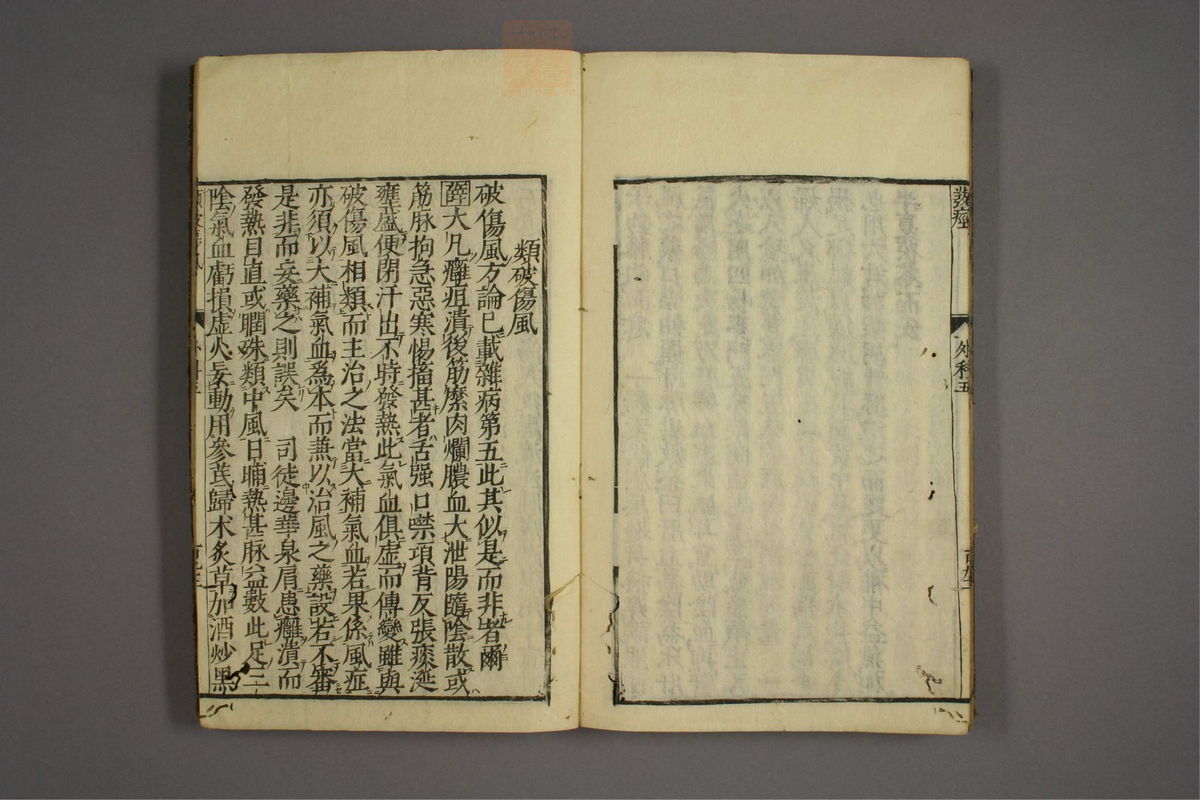 發痙
外科五
類破傷風
破傷風方論已載雜病第五此其似是而非者爾
薛大凡癰疽潰後筋縻肉爛膿血大泄陽隨陰散或
筋脉拘急惡寒惕搐甚者舌强口噤項背反張痰涎
壅盛便閉汗出不時發熱此氣血俱虛而傳變雖與
破傷風相類而主治之法當大補氣血若果係風症
亦須以大補氣血爲本而兼以治風之藥設若不審
是非而妄藥之則誤矣 司徒邊華泉肩患癰潰而
發熱目直或瞤殊類中風日晡熱甚脉益數此足三
陰氣血虧損虛火妄動用參芪歸术炙草加酒炒黑